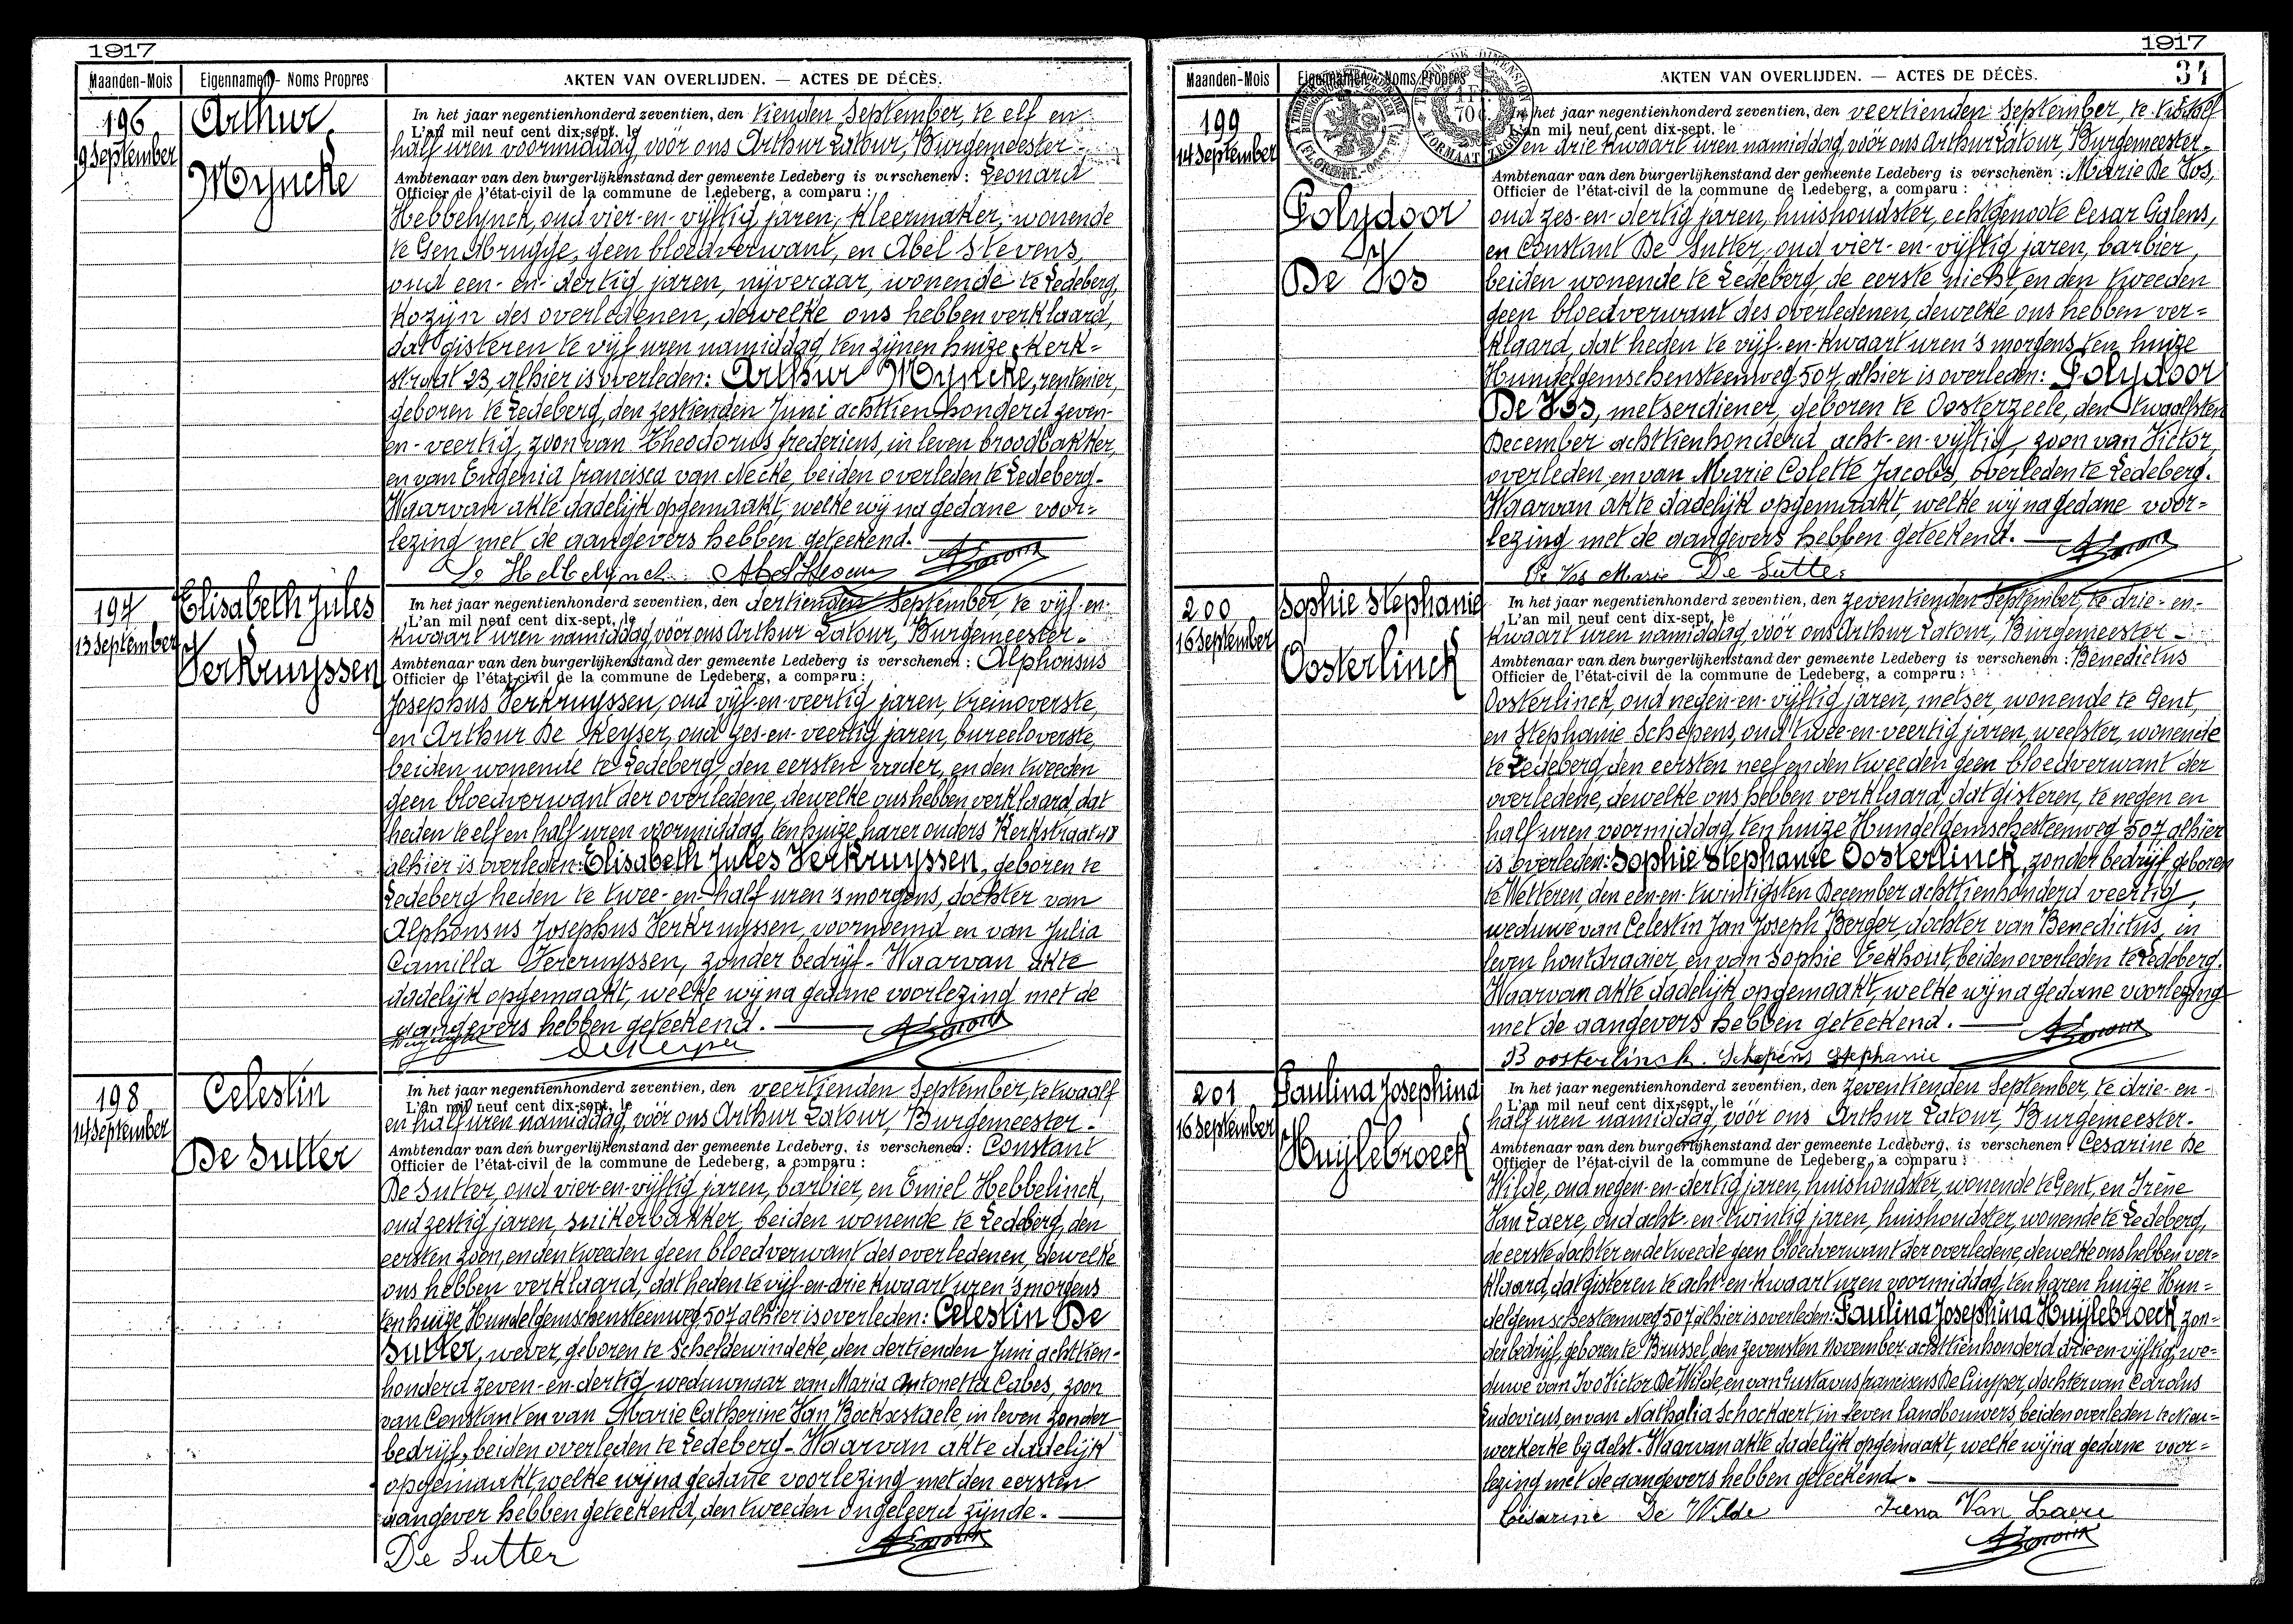 1917
Maanden-Mois
Eigennamen - Noms Propres
AKTEN VAN OVERLIJDEN. — ACTES DE DÉCÈS.
196
9 September
Arthur
Myncke
In het jaar negentienhonderd zeventien, den tienden September, te elf en
L'an mil neuf cent dix-sept, le
half uren voormiddag, vóór ons Arthur Latour, Burgemeester -
Ambtenaar van den burgerlijkenstand der gemeente Ledeberg is verschenen : Leonard
Officier de l'état-civil de la commune de Ledeberg, a comparu :
Hebbelynck, oud vier-en-vijftig jaren, kleermaker, wonende
te Gendbrugge, geen bloedverwant, en Abel Stevens,
oud een-en-dertig jaren, nijveraar, wonende te Ledeberg,
kozijn des overledenen, dewelke ons hebben verklaard,
dat gisteren te vijf uren namiddag, ten zijnen huize, Kerk=
straat 23, alhier is overleden: Arthur Myncke, rentenier,
geboren te Ledeberg, den zestienden Juni achttien honderd zeven-
en-veertig, zoon van Theodorus fredericus, in leven broodbakker,
en van Eugenia francisca van Necke, beiden overleden te Ledeberg-
Waarvan akte dadelijk opgemaakt, welke wij na gedane voor=
lezing met de aangevers hebben geteekend. —
Le Hebbelynck Abel Stevens ALatour
197
13 September
Elisabeth Jules
Verkruyssen
In het jaar negentienhonderd zeventien, den dertienden September, te vijf-en-
L'an mil neuf cent dix-sept, le
kwaart uren namiddag vóór ons Arthur Latour, Burgemeester -
Ambtenaar van den burgerlijkenstand der gemeente Ledeberg is verschenen : Alphonsus
Officier de l'état-civil de la commune de Ledeberg, a comparu :
Josephus Verkruyssen, oud vijf-en-veertig jaren, treinoverste,
en Arthur De Keyser, oud zes-en-veertig jaren, bureeloverste,
beiden wonende te Ledeberg, den eersten vader, en den tweeden
geen bloedverwant der overledene, dewelke ons hebben verklaard dat
heden te elf en half uren voormiddag, ten huize harer ouders Kerkstraat 48
alhier is overleden: Elisabeth Jules Verkruyssen, geboren te
Ledeberg heden te twee-en-half uren 's morgens, dochter van
Alphonsus Josephus Verkruyssen, voornoemd en van Julia
Camilla Vereruyssen, zonder bedrijf - Waarvan akte
dadelijk opgemaakt, welke wij na gedane voorlezing met de
aangevers hebben geteekend. — ALatour
DeKeyser
198
14 September
Celestin
De Sutter
In het jaar negentienhonderd zeventien, den veertienden September, te twaalf
L'an mil neuf cent dix-sept, le
en half uren namiddag, vóór ons Arthur Latour, Burgemeester -
Ambtenaar van den burgerlijkenstand der gemeente Ledeberg, is verschenen : Constant
Officier de l'état-civil de la commune de Ledeberg, a comparu :
De Sutter, oud vier-en-vijftig jaren, barbier, en Emiel Hebbelinck,
oud zestig jaren, suikerbakker, beiden wonende te Ledeberg, den
eersten zoon, en den tweeden geen bloedverwant des overledenen, dewelke
ons hebben verklaard, dat heden te vijf-en-drie kwaart uren 's morgens
ten huize, Hundelgemschensteenweg, 507 alhier is overleden: Celestin De
Sutter, wever, geboren te Scheldewindeke, den dertienden Juni achttien-
honderd zeven-en-dertig, weduwnaar van Maria Antonetta Cabes, zoon
van Constant en van Marie Catherine Van Bockxstaele, in leven zonder
bedrijf, beiden overleden te Ledeberg - Waarvan akte dadelijk
opgemaakt, welke wij na gedane voorlezing met den eersten
aangever hebben geteekend, den tweeden ongeleerd zijnde. —
De Sutter ALatour
1917
34
Maanden-Mois
Eigennamen - Noms Propres
AKTEN VAN OVERLIJDEN. — ACTES DE DÉCÈS.
199
14 September
Polydoor
De Vos
In het jaar negentienhonderd zeventien, den veertienden September, te twaalf
L'an mil neuf cent dix-sept, le
en drie kwaart uren namiddag, vóór ons Arthur Latour, Burgemeester -
Ambtenaar van den burgerlijkenstand der gemeente Ledeberg is verschenen : Marie De Vos,
Officier de l'état-civil de la commune de Ledeberg, a comparu :
oud zes-en-dertig jaren, huishoudster, echtgenoote Cesar Gylens,
en Constant De Sutter, oud vier-en-vijftig jaren, barbier,
beiden wonende te Ledeberg, de eerste nicht, en den tweeden
geen bloedverwant des overledenen, dewelke ons hebben ver=
klaard, dat heden te vijf-en-kwaart uren 's morgens, ten huize
Hundelgemschensteenweg 507, alhier is overleden: Polydoor
De Vos, metserdiener, geboren te Oosterzeele, den twaalfsten
December achttienhonderd acht-en-vijftig, zoon van Victor,
overleden en van Marie Colette Jacobs, overleden te Ledeberg.
Waarvan akte dadelijk opgemaakt, welke wij na gedane voor=
lezing met de aangevers hebben geteekend. — ALatour
De Vos Marie De Sutter
200
16 September
Sophie Stephanie
Oosterlinck
In het jaar negentienhonderd zeventien, den zeventienden September, te drie-en-
L'an mil neuf cent dix-sept, le
kwaart uren namiddag vóór ons Arthur Latour, Burgemeester -
Ambtenaar van den burgerlijkenstand der gemeente Ledeberg is verschenen : Benedictus
Officier de l'état-civil de la commune de Ledeberg, a comparu :
Oosterlinck, oud negen-en-vijftig jaren, metser, wonende te Gent,
en Stephanie Schepens, oud twee-en-veertig jaren, weefster, wonende
te Ledeberg, den eersten neef en den tweeden geen bloedverwant der
overledene, dewelke ons hebben verklaard, dat gisteren, te negen en
half uren voormiddag, ten huize Hundelgemschesteenweg 507 alhier
is overleden: Sophie Stephanie Oosterlinck, zonder bedrijf geboren
te Wetteren, den een-en-twintigsten December achttienhonderd veertig,
weduwe van Celestin Jan Joseph Berger, dochter van Benedictus, in
leven houtdraaier, en van Sophie Eekhout, beiden overleden te Ledeberg.
Waarvan akte dadelijk opgemaakt, welke wij na gedane voorlezing
met de aangevers hebben geteekend. — ALatour
B oosterlinck. Schepens Stephanie
201
16 September
Paulina Josephina
Huylebroeck
In het jaar negentienhonderd zeventien, den zeventienden September, te drie-en-
L'an mil neuf cent dix-sept, le
half uren namiddag, vóór ons Arthur Latour, Burgemeester -
Ambtenaar van den burgerlijkenstand der gemeente Ledeberg, is verschenen : Cesarine De
Officier de l'état-civil de la commune de Ledeberg, a comparu :
Wilde, oud negen-en-dertig jaren, huishoudster, wonende te Gent, en Irène
Van Laere, oud acht-en-twintig jaren, huishoudster, wonende te Ledeberg,
de eerste dochter en de tweede geen bloedverwant der overledene, dewelke ons hebben ver=
klaard, dat gisteren te acht-en-kwaart uren voormiddag, ten haren huize Hun=
delgemschesteenweg 507 alhier is overleden: Paulina Josephina Huylebroeck, zon=
der bedrijf, geboren te Brussel, den zevensten November achttienhonderd drie-en-vijftig, we=
duwe van Ivo Victor De Wilde, en van Gustavus franciscus De Cuyper, dochter van Carolus
Ludovicus, en van Nathalia Schockaert, in leven landbouwers, beiden overleden te Nieu=
werkerke bij Aelst. Waarvan akte dadelijk opgemaakt, welke wij na gedane voor=
lezing met de aangevers hebben geteekend. —
Césarine De Wilde Irena Van Laere
ALatour